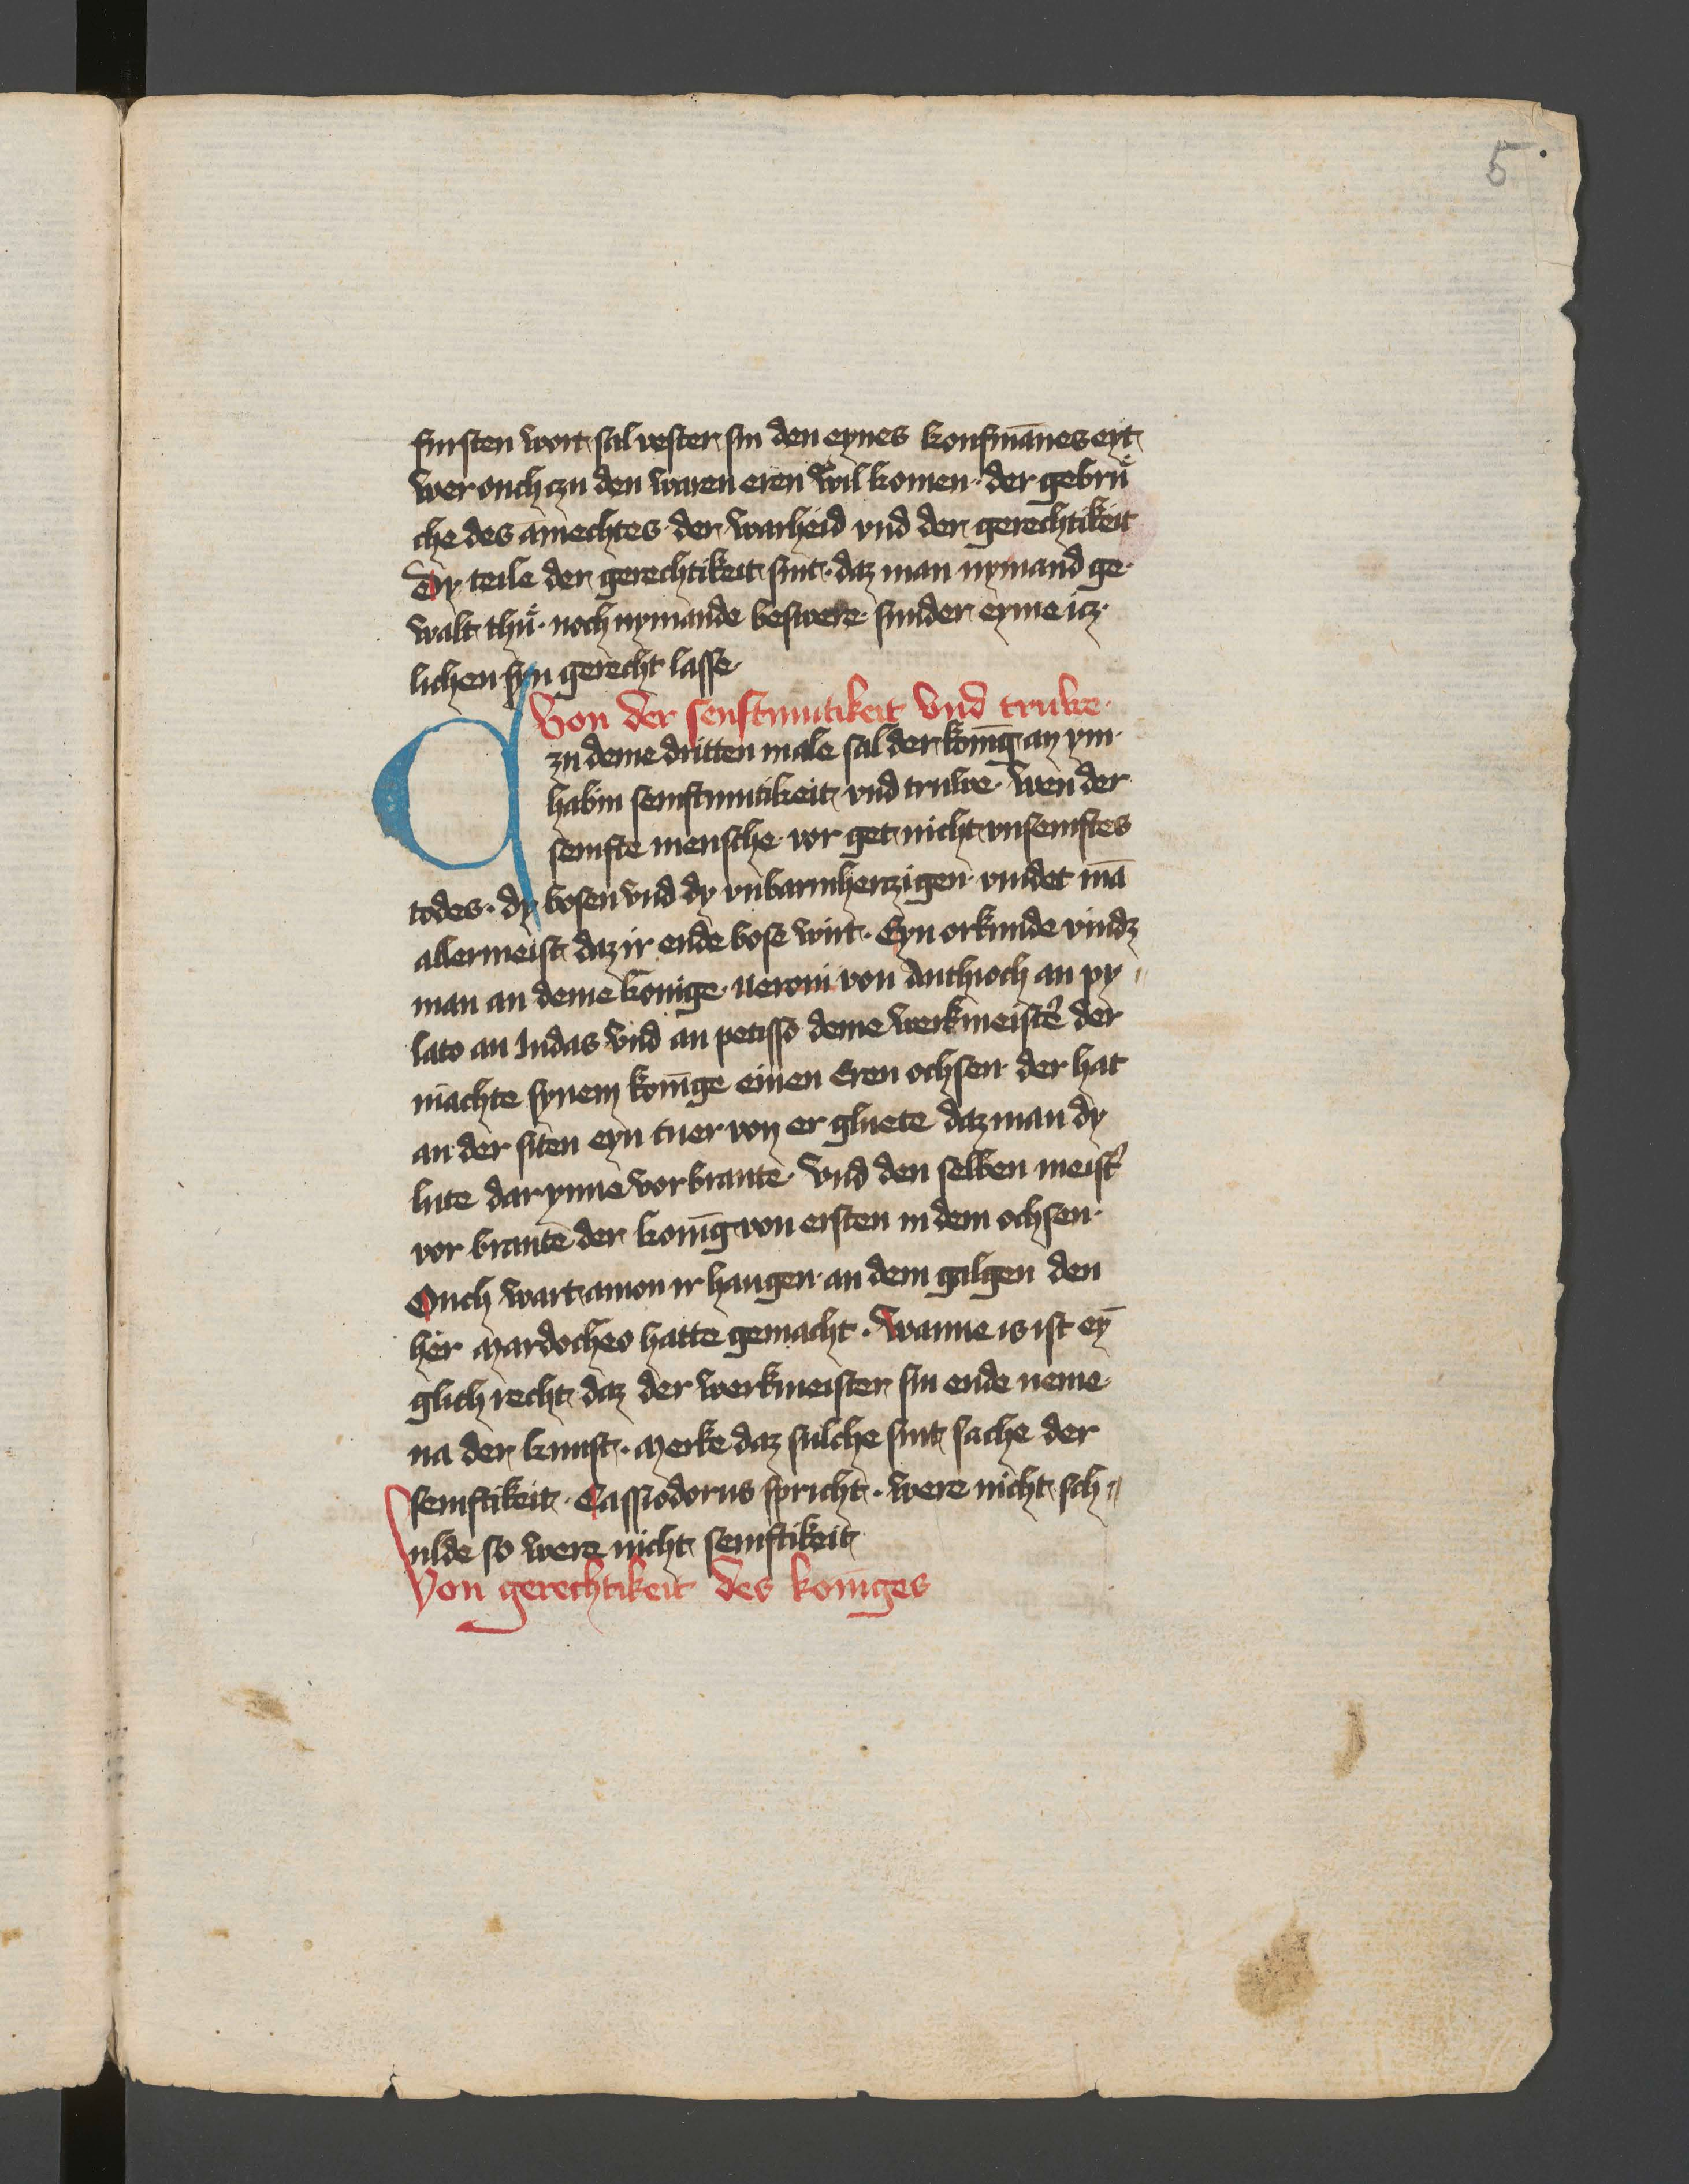 5
fursten wort sal vester sin den eynes koufmānes eyt
wer ouch czu den waren eren wil komen · der gebrů
che des āmechtes der warheid vnd der gerechtikeit
Dy teile der gerechtikeit sint · daz man nymand ge
walt thů · noch nymande beswere sunder eyme icz
lichen syn gerecht lasse
Von der senftmutikeit vnd truwe ·
zu deme dritten male sal der konīg an ym
habin semftmutikeit vnd truwe · wen der
semfte mensche vor get nicht vnsemftes
todes · dy bosen vnd dy vnbarmherczigen vindet mā
allermeist daz ir ende bose wirt · Eyn orkunde vindz
man an deme konige neroni von Anthioch an py
lato an Iudas vnd an petisso deme werkmeistẽ der
machte synem konīge einen Eren ochsen der hat
an der siten eyn tuer von er gluete daz man dy
lute dar ynne vorbrante · vnd den selben meist͛
vor brante der konīg von ersten in dem ochsen ·
Ouch wart amon ir hangen · an dem galgen den
her mardocheo hatte gemacht · wanne is ist ey̅
glich recht daz der werkmeister sin ende neme
na der kunst · merke daz sulche sint sache der
semftikeit · Cassiodorus spricht · were nicht sch
ulde so were nicht semftikeit
Von gerechtikeit des konīges